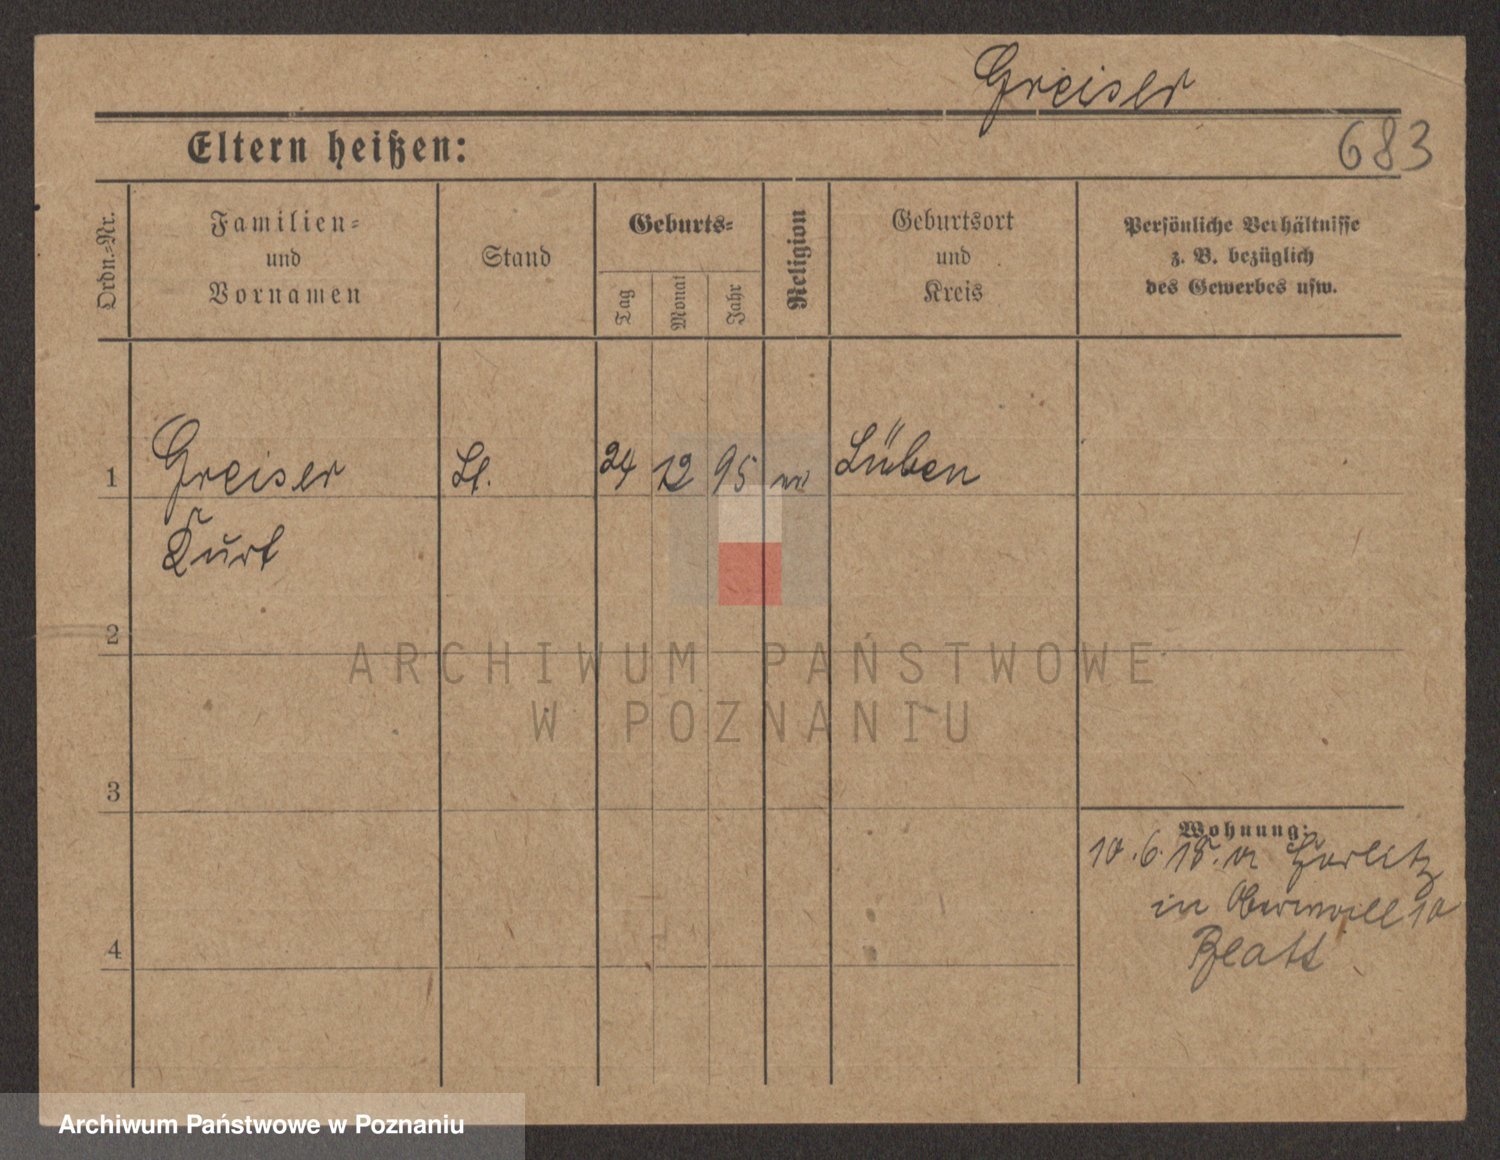 Greiser
683
Eltern heißen:
Ordn.-Nr.
Familien- und Vornamen
Stand
Geburts-
Tag
Monat
Jahr
Religion
Geburtsort und Kreis
Persönliche Verhältnisse z. B. bezüglich des Gewerbes usw.
1 Greiser Lt. 24 12 95 Lüben
Kurt
2
3
4
Wohnung:
10.6.18. v Görlitz
in 10
Blatt
ARCHIWUM PAŃSTWOWE
W POZNANIU
Archiwum Państwowe w Poznaniu